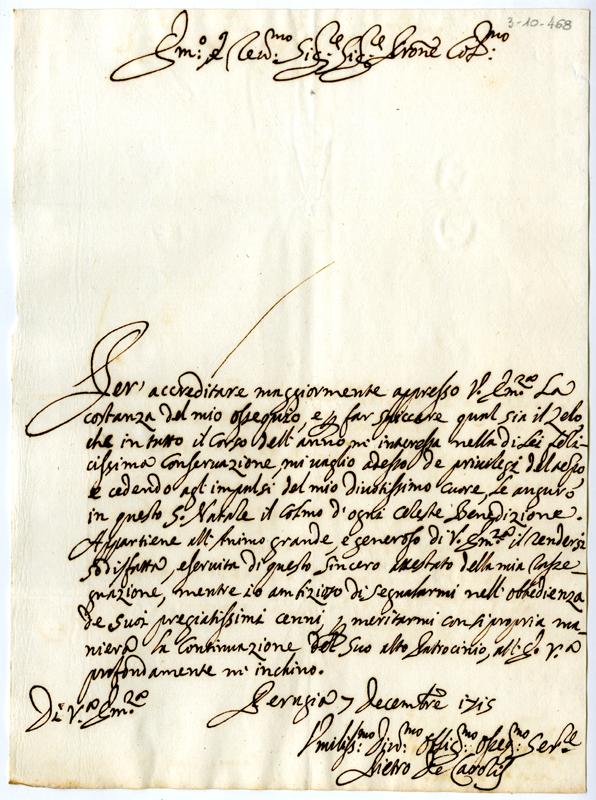 3-10-468
Em:o e Rev:mo Sig:re Sig:re Prone Col:mo
Per accreditare maggiormente appresso V. Em:za La
costanza del mio ossequio, e p far spiccare qual sia il Zelo,
che in tutto il Corso dell'anno mi interessa nella di Lei feli-
cissima Conservazione, mi vaglio adesso de privilegj del
e cedendo agl'impulsi del mio divotissimo Cuore, Le auguro
in questo S. Natale il Colmo d'ogni Celeste Benedizione.
Appartiene all'Animo grande, e generoso di V. Em:za il rendersi
sodisfatta, e servita di questo sincero attestato della mia Rasse-
gnazione, mentre io ambizioso di segnalarmi nell'obbedienza
de Suoi pregiatissimi cenni, p meritarmi con sì propria ma-
niera la Continuazione del Suo alto Patrocinio, all' V.a
profondamente m'inchino.
Di V.a Em:za Perugia 7 Decembre 1715
Umiliss:mo Div:mo Obblig:mo Osseq:mo Serv:re
Pietro de